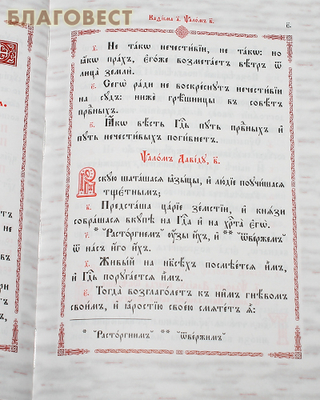 БЛАГОВЕСТ
Каѳі́сма а҃. Ѱало́мъ в҃.
д҃. Не та́кѡ нечести́вїи, не та́кѡ: но
ꙗ҆́кѡ пра́хъ, є҆го́же возмета́етъ вѣ́тръ ѿ
лица̀ землѝ.
є҃. Сегѡ̀ ра́ди не воскре́снꙋтъ нечести́вїи
на сꙋ́дъ: нижѐ грѣ̑шницы въ совѣ́тъ
првⷣныхъ.
ѕ҃. Ꙗ҆́кѡ вѣ́сть гдⷭ҇ь пꙋ́ть првⷣныхъ и҆
пꙋ́ть нечести́выхъ поги́бнетъ.
Ѱало́мъ Даві́дꙋ, в҃.
Вскꙋ́ю шата́шасѧ ꙗ҆зы́цы, и҆ лю́дїе поꙋчи́шасѧ
тщє́тнымъ;
в҃. Предста́ша ца́рїе зе́мстїи, и҆ кнѧ̑зи
собра́шасѧ вкꙋ́пѣ на гдⷭ҇а и҆ на хрⷭ҇та̀ є҆гѡ̀.
г҃. *Расто́ргнемъ ᲂу҆́зы и҆́хъ, и҆ **ѿве́ржемъ
ѿ на́съ и҆́го и҆́хъ.
д҃. Живы́й на нб҃сѣ́хъ посмѣе́тсѧ и҆̀мъ,
и҆ гдⷭ҇ь порꙋга́етсѧ и҆̀мъ.
є҃. Тогда̀ возглаго́летъ къ ни̑мъ гнѣ́вомъ
свои́мъ, и҆ ꙗ҆́ростїю свое́ю смѧте́тъ ѧ҆̀:
* Расто́ргнимъ ** ѿве́ржимъ